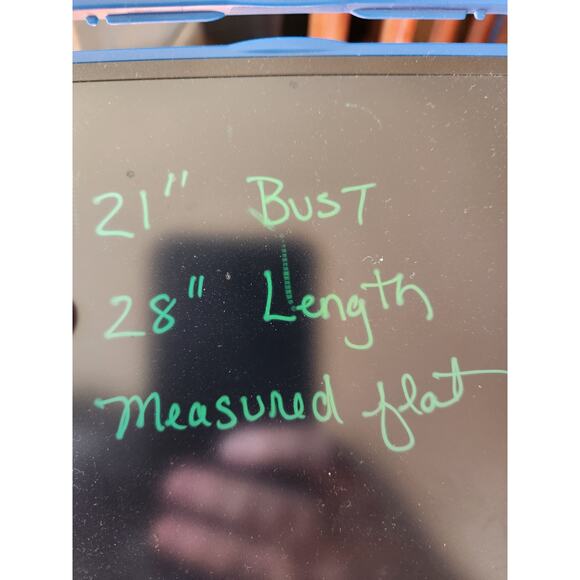 21" BUST
28" Length
measured flat